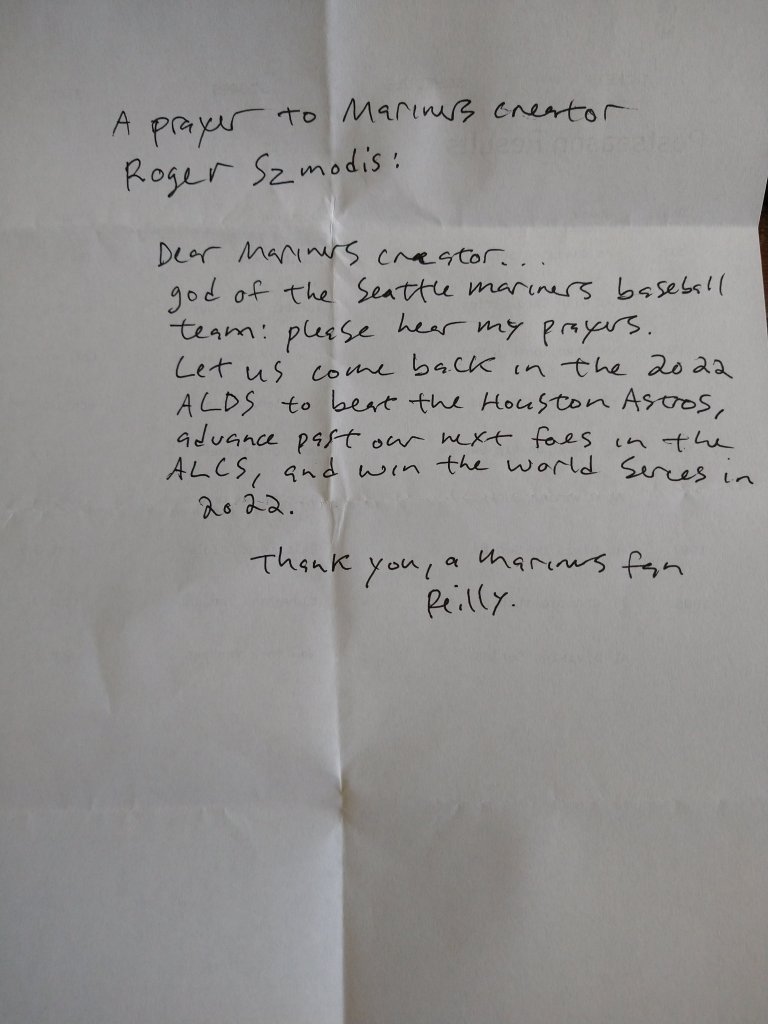 A prayer to Mariners creator
Roger Szmodis:
Dear Mariners creator...
god of the Seattle mariners baseball
team: please hear my prayers.
Let us come back in the 2022
ALDS to beat the Houston Astros,
advance past our next foes in the
ALCS, and win the world Series in
2022.
Thank you, a Mariners fan
Reilly.